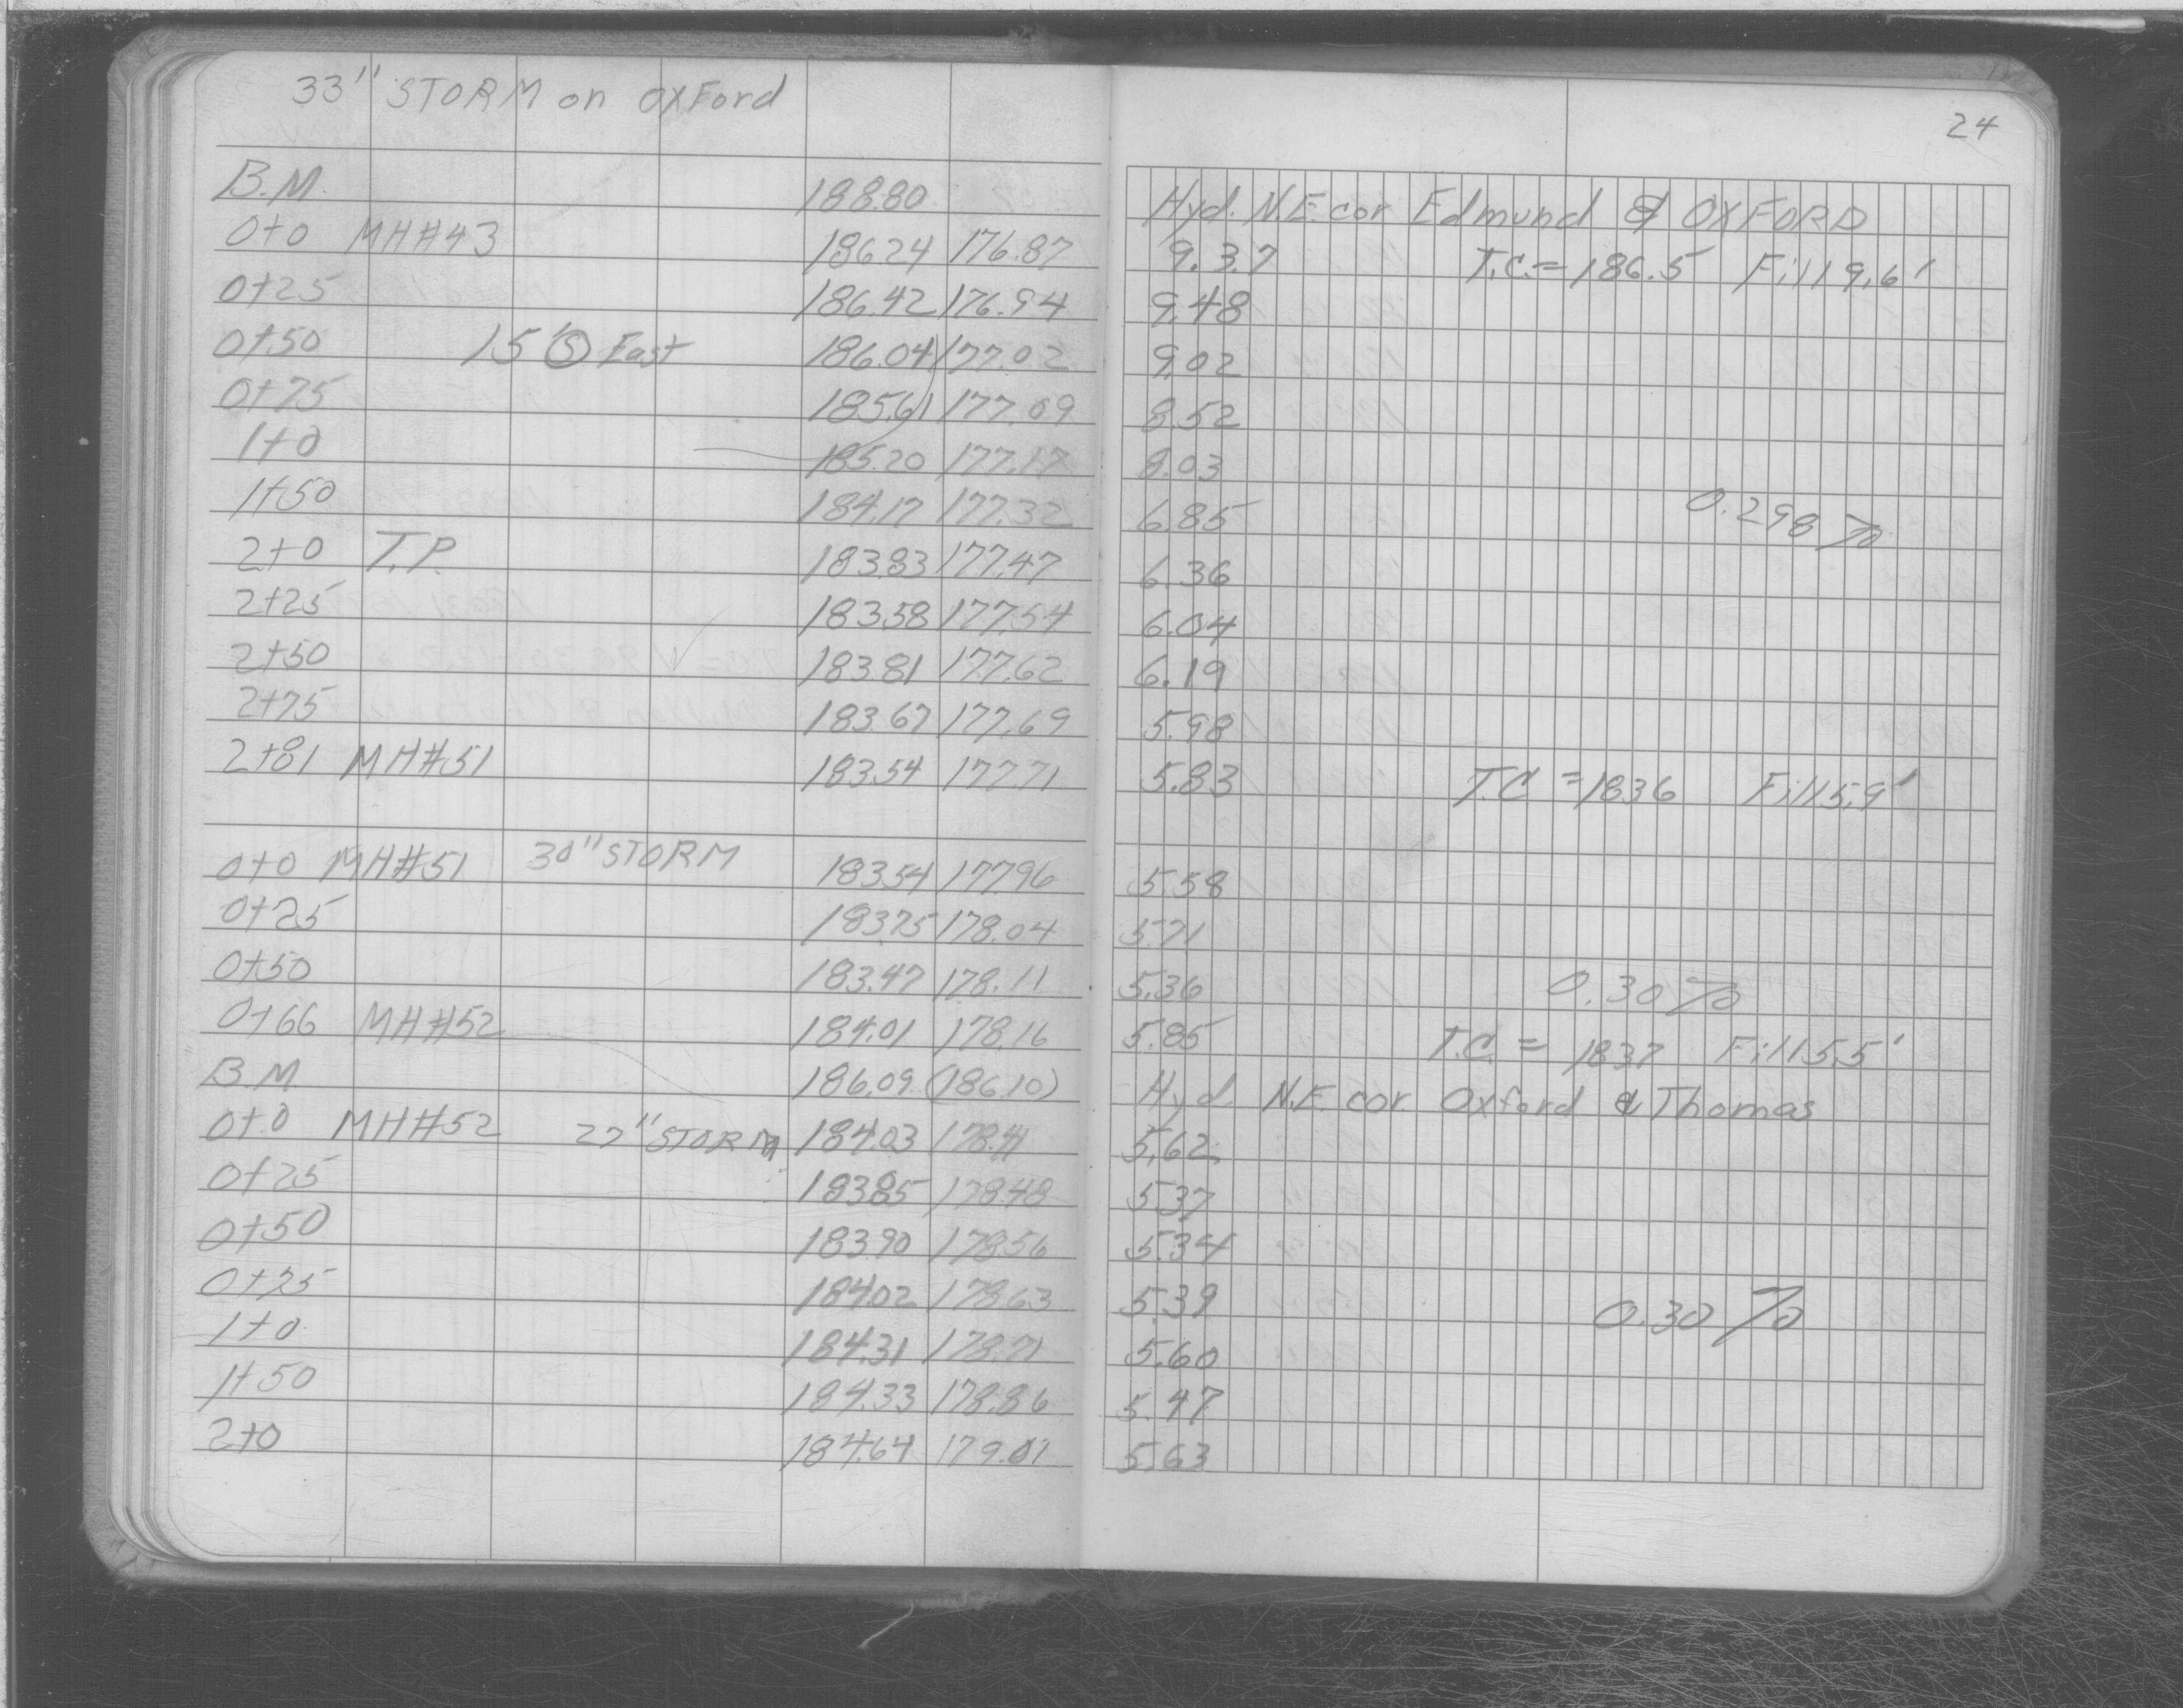 33" STORM on OXFord
24
B.M. 188.80 Hyd. N.E. cor Edmund & OXFORD
0+0 MH#43 186.24 176.87 9.37 T.C.=186.5 Fill 9.6'
0+25 186.42 176.94 9.48
0+50 15'Ⓢ East 186.04 177.02 9.02
0+75 185.61 177.09 8.52
1+0 185.20 177.17 8.03
1+50 184.17 177.32 6.85 0.298%
2+0 T.P. 183.83 177.47 6.36
2+25 183.58 177.54 6.04
2+50 183.81 177.62 6.19
2+75 183.67 177.69 5.98
2+81 MH#51 183.54 177.71 5.83 T.C=183.6 Fill 5.9'
0+0 MH#51 30" STORM 183.54 177.96 5.58
0+25 183.75 178.04 5.71
0+50 183.47 178.11 5.36 0.30%
0+66 MH#52 184.01 178.16 5.85 T.C.= 183.7 Fill 5.5'
B.M. 186.09 (186.10) Hyd. N.E. cor. Oxford & Thomas
0+0 MH#52 27" STORM 184.03 178.41 5.62
0+25 183.85 178.48 5.37
0+50 183.90 178.56 5.34
0+75 184.02 178.63 5.39 0.30%
1+0 184.31 178.71 5.60
1+50 184.33 178.86 5.47
2+0 184.64 179.01 5.63